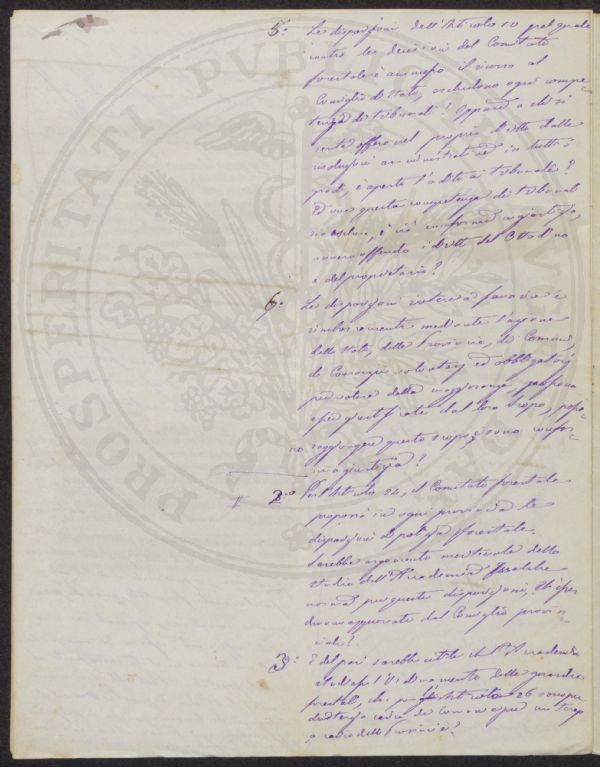 5.° Le disposizioni dell'Articolo 10 pel quale
contro le decisioni del Comitato
forestale è ammesso il ricorso al
Consiglio di Stato, escludono ogni compe-
tenza dei tribunali? Oppure a chi si
senta offeso nel proprio diritto dalle
risoluzioni amministrative in tutto o
parte, è aperto l'adito ai tribunali?
Ed ove questa competenza dei tribunali
sia esclusa, è ciò conforme a giustizia,
ovvero offende i diritti del Cittadino
e del proprietario?
6.° Le disposizioni a favorire i
rimboscamenti mediante l'azione
dello Stato, delle Provincie, dei Comuni,
di Consorzi volontarj ed obbligatorj
per volere della maggioranza, possono
giustificate dal loro scopo,
raggiungere questo scopo, e sono confor-
mi a giustizia?
II 2.° Per l'Articolo 24, il Comitato forestale
proporrà in ogni provincia le
disposizioni di polizia forestale.
Sarebbe argomento meritevole dello
studio dell'Accademia
norma per queste disposizioni,
approvate dal Consiglio provin-
ciale?
3.° E del pari sarebbe utile che l'Accademia
l'ordinamento delle guardie
forestali, che per l'Articolo 26 sono per
due terzi a carico dei Comuni e per un terzo
a carico delle Provincie?
PROSPERITATI PUBLICAE